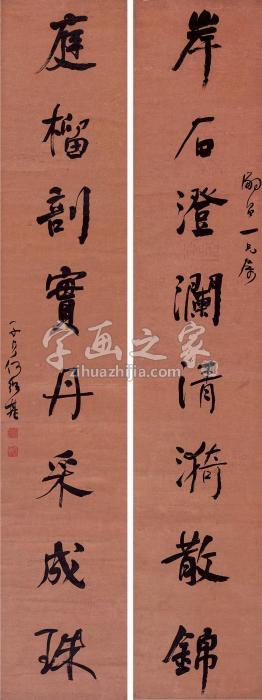 岸石澄瀾清漪散錦
一兄屬
庭榴剖實丹采成珠
子貞何紹基
字画之家
zihuazhijia.com